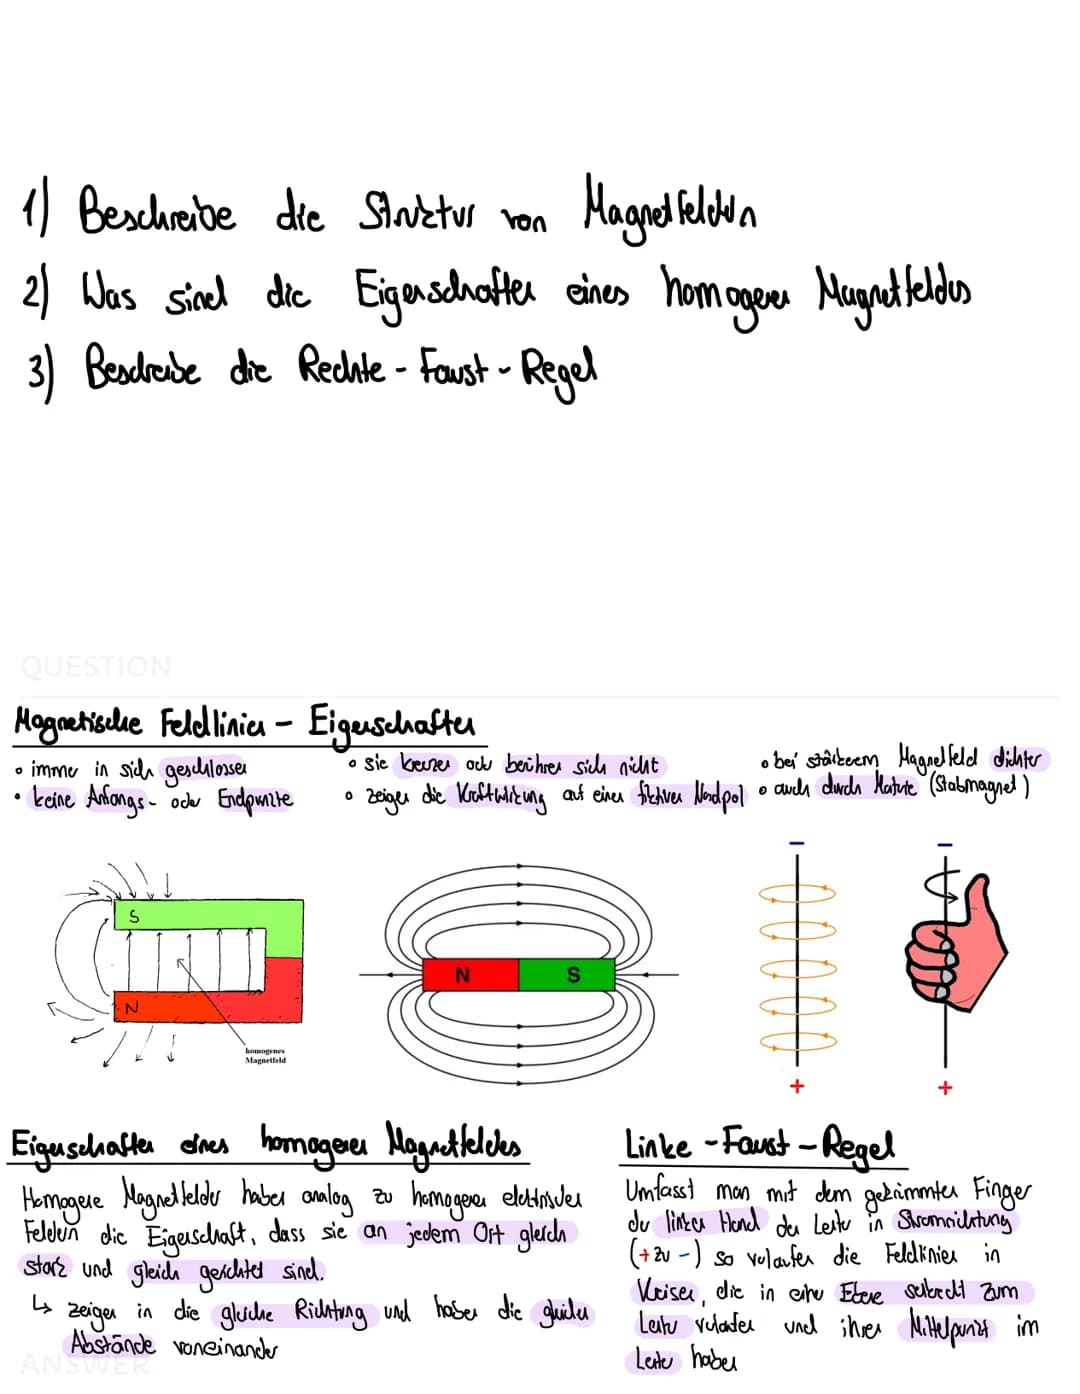 1) Beschreibe die Struktur von Magnetfeldern
2) Was sind die Eigenschaften eines homogenen Magnetfeldes
3) Beschreibe die Rechte - Faust - Regel
QUESTION
Magnetische Feldlinien - Eigenschaften
• immer in sich geschlossen
• keine Anfangs- oder Endpunkte
• sie kreuzen oder berühren sich nicht
• zeigen die Kraftwirkung auf einen fiktiven Nordpol
• bei stärkerem Magnetfeld dichter
• auch durch Materie (Stabmagnet)
S
N
homogenes
Magnetfeld
N S
-
+
-
+
Eigenschaften eines homogenen Magnetfeldes
Homogene Magnetfelder haben analog zu homogenen elektrischen
Feldern die Eigenschaft, dass sie an jedem Ort gleich
stark und gleich gerichtet sind.
↳ zeigen in die gleiche Richtung und haben die gleichen
Abstände voneinander
ANSWER
Linke - Faust - Regel
Umfasst man mit dem gekrümmten Finger
der linken Hand den Leiter in Stromrichtung
(+ zu -) so verlaufen die Feldlinien in
Kreisen, die in einer Ebene senkrecht zum
Leiter verlaufen und ihren Mittelpunkt im
Leiter haben